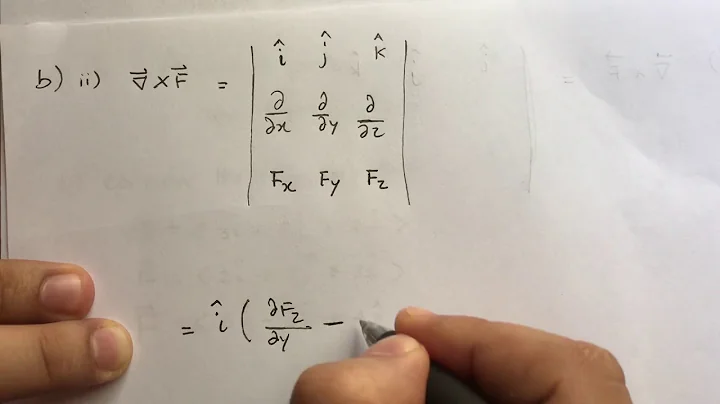 b) ii) ∇⃗ × F⃗ = | î ĵ k̂ |
| ∂/∂x ∂/∂y ∂/∂z |
| Fx Fy Fz |
= î ( ∂Fz/∂y −